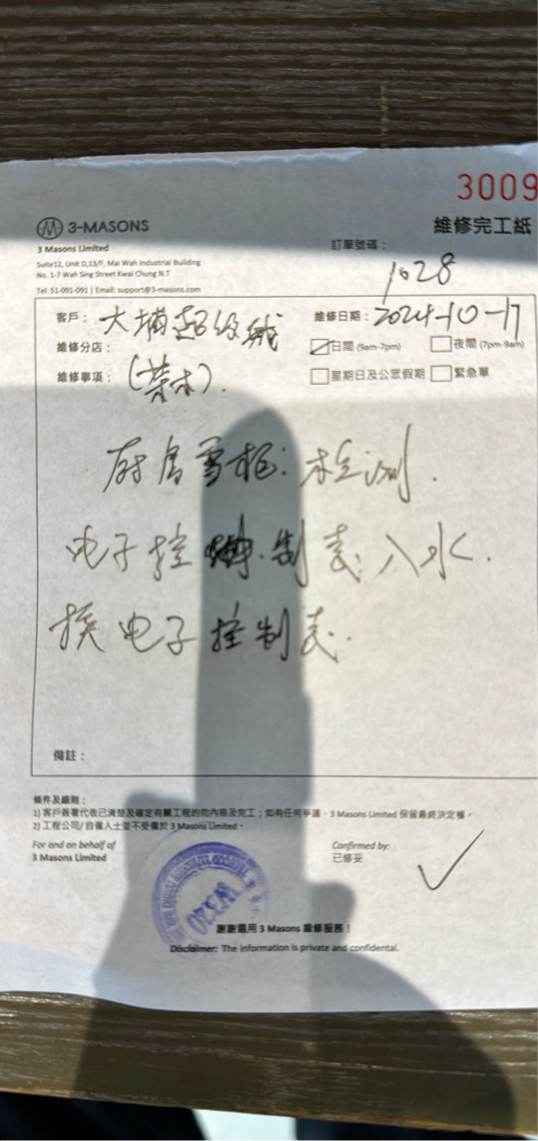 3009
3-MASONS
維修完工紙
3 Masons Limited
訂單號碼：
1028
Suite12, Unit D,13/F, Mai Wah Industrial Building
No. 1-7 Wah Sing Street Kwai Chung N.T
Tel: 51-091-091 | Email: support@3-masons.com
客戶： 大埔超级城
維修日期： 2024-10-17
維修分店：
日間 (9am-7pm) 夜間 (7pm-9am)
維修事項：
星期日及公眾假期 緊急單
厨房雪柜: 检测.
电子控 制表入水.
换电子控制表.
備註：
條件及細則：
1) 客戶簽署代表已清楚及確定有關工程的完內容及完工；如有任何爭議，3 Masons Limited 保留最終決定權。
2) 工程公司/ 自僱人士並不受僱於 3 Masons Limited。
For and on behalf of
3 Masons Limited
Confirmed by:
已修妥
W320
謝謝選用 3 Masons 維修服務！
Disclaimer: The information is private and confidental.